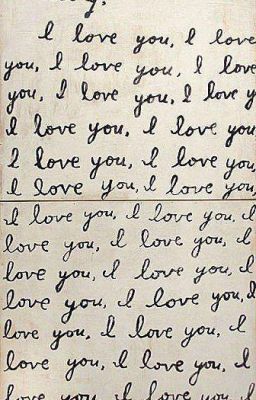 I love you, I love
you, I love you, I love
you, I love you, I love y
I love you, I love you
I love you, I love you,
I love you, I love you,
I love you, I love you, I
love you, I love you, I
love you, I love you, I
love you, I love you, I
love you, I love you, I
love you, I love you, I
love you, I love you, I